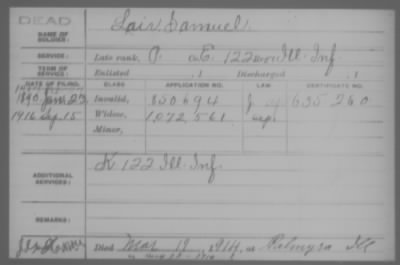 DEAD
NAME OF SOLDIER: Lair Samuel
SERVICE: Late rank, P. Co. E, 122 Ill. Inf.
TERM OF SERVICE: Enlisted , 1 Discharged , 1
DATE OF FILING. CLASS. APPLICATION NO. LAW. CERTIFICATE NO.
1890 Jan 23 Invalid, 850694 635280
1916 Sep. 15 Widow, 1,072,561
Minor,
ADDITIONAL SERVICES: K 122 Ill. Inf.
REMARKS:
Died Mar 19, 1914, at Palmyra Ill